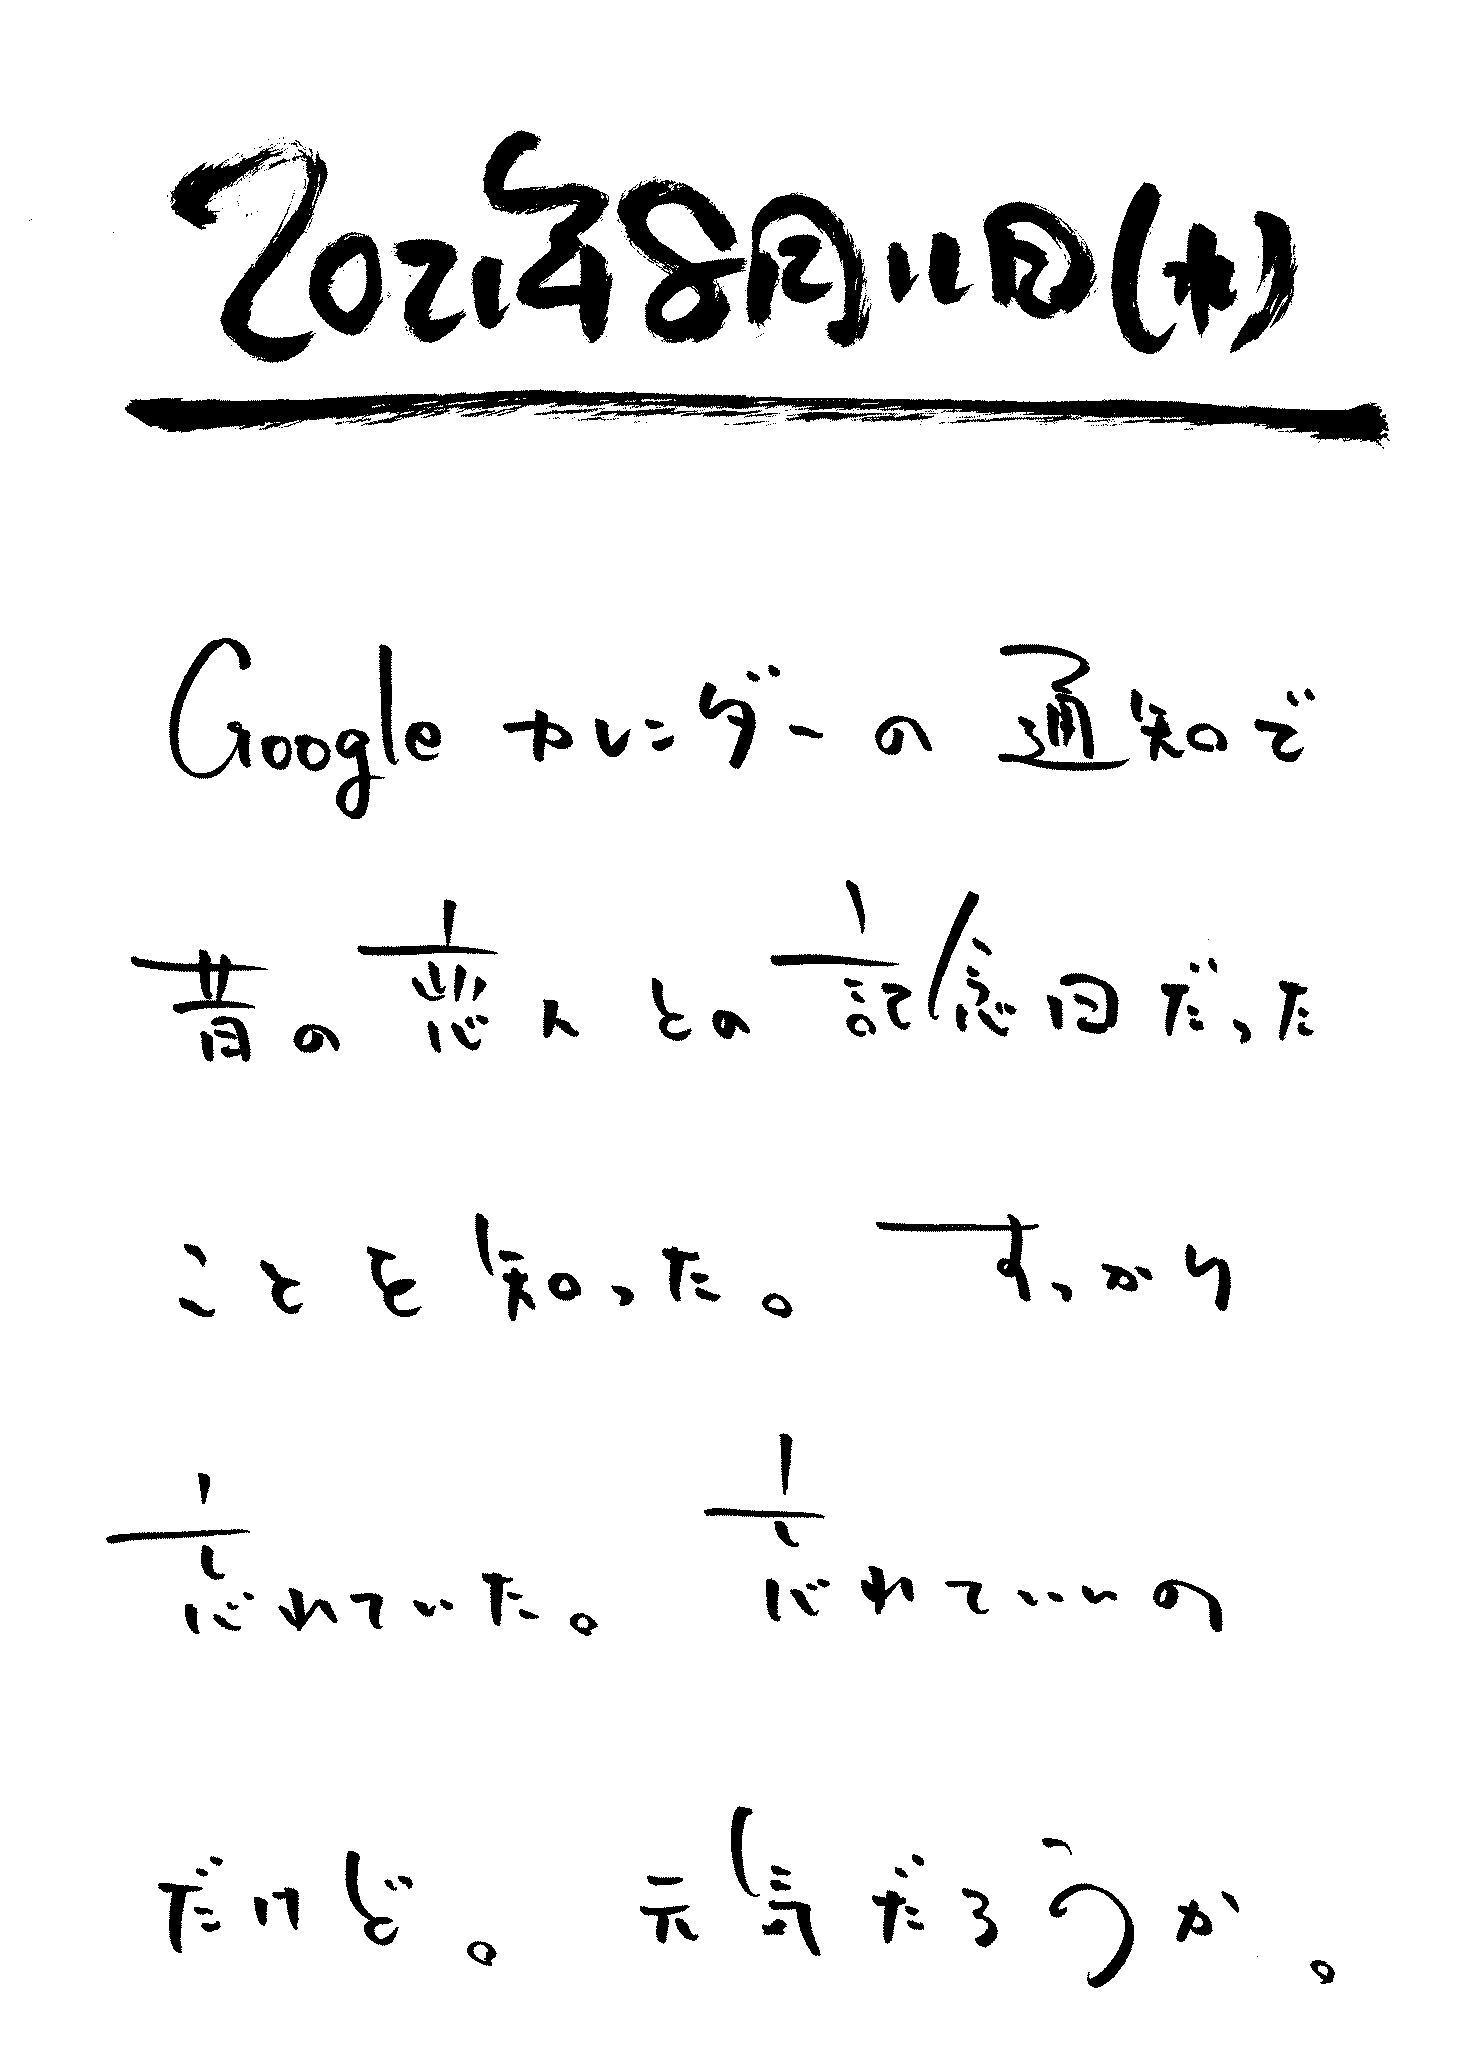 2021年8月11日(水)
Googleカレンダーの通知で
昔の恋人との記念日だった
ことを知った。すっかり
忘れていた。忘れていいの
だけど。元気だろうか。